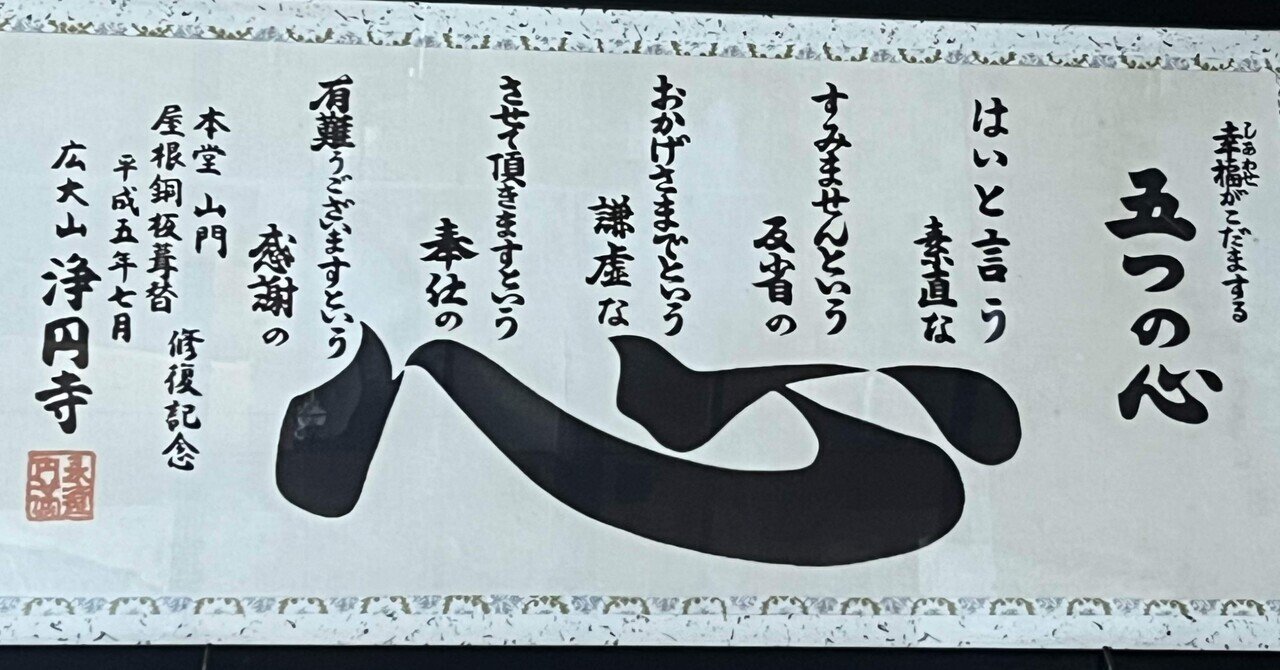 幸福がこだまする
しあわせ
五つの心
はいと言う
素直な
すみませんという
反省の
おかげさまでという
謙虚な
させて頂きますという
奉仕の
有難うございますという
感謝の
心
本堂 山門
屋根銅板葺替
修復記念
平成五年七月
広大山 浄円寺